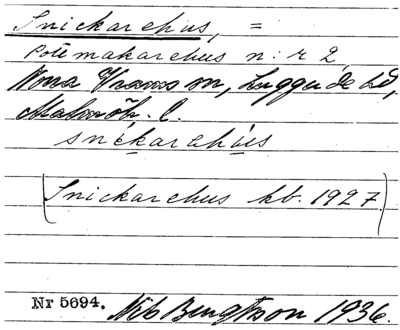 Snickarehus, =
Pottemakarehus n:r 2
Norra Vrams sn, Luggude hd,
Malmöh. l.
snékarehùs
(Snickarehus kb. 1927.)
Nr 5694. Nils Bengtsson 1936.